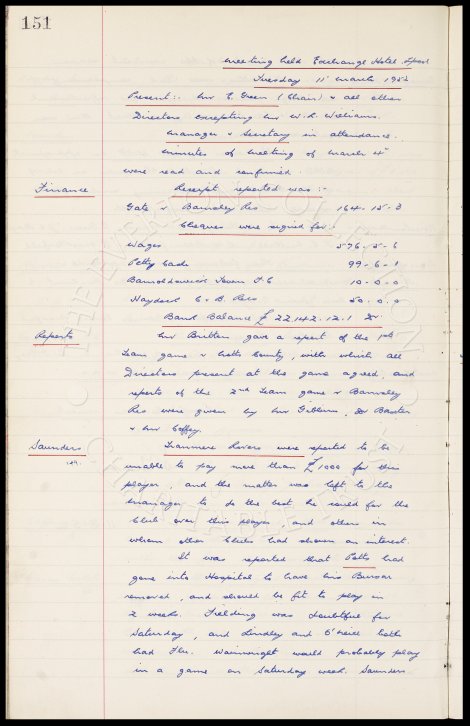 151
Meeting held Exchange Hotel L'pool
Tuesday 11th March 1952
Present:- Mr E. Green (Chair) & all other
Directors excepting Mr W. R. Williams.
Manager & Secretary in attendance.
Minutes of Meeting of March 4th
were read and confirmed.
Finance
Receipt reported was :-
Gate v Barnsley Res 164 - 15 - 3
Cheques were signed for :
Wages 576 - 5 - 6
Petty Cash 99 - 6 - 1
Barnoldswick Town F.C 10 - 0 - 0
Haydock C & B. Recs 50 - 0 - 0
Bank Balance £22,142 - 12 - 1 Dr
Reports
Mr Britten gave a report of the 1st
Team game v Notts County, with which all
Directors present at the game agreed, and
reports of the 2nd Team game v Barnsley
Res were given by Mr Gibbins, Dr Baxter
& Mr Coffey.
Saunders
Tranmere Rovers were reported to be
unable to pay more than £1000 for this
player, and the matter was left to the
Manager to do the best he could for the
Club over this player, and others in
whom other Clubs had shown an interest.
It was reported that Potts had
gone into Hospital to have his Bursar
removed, and should be fit to play in
2 weeks. Fielding was doubtful for
Saturday, and Lindley and O'Neill both
had Flu. Wainwright would probably play
in a game on Saturday week. Saunders
THE EVERTON COLLECTION